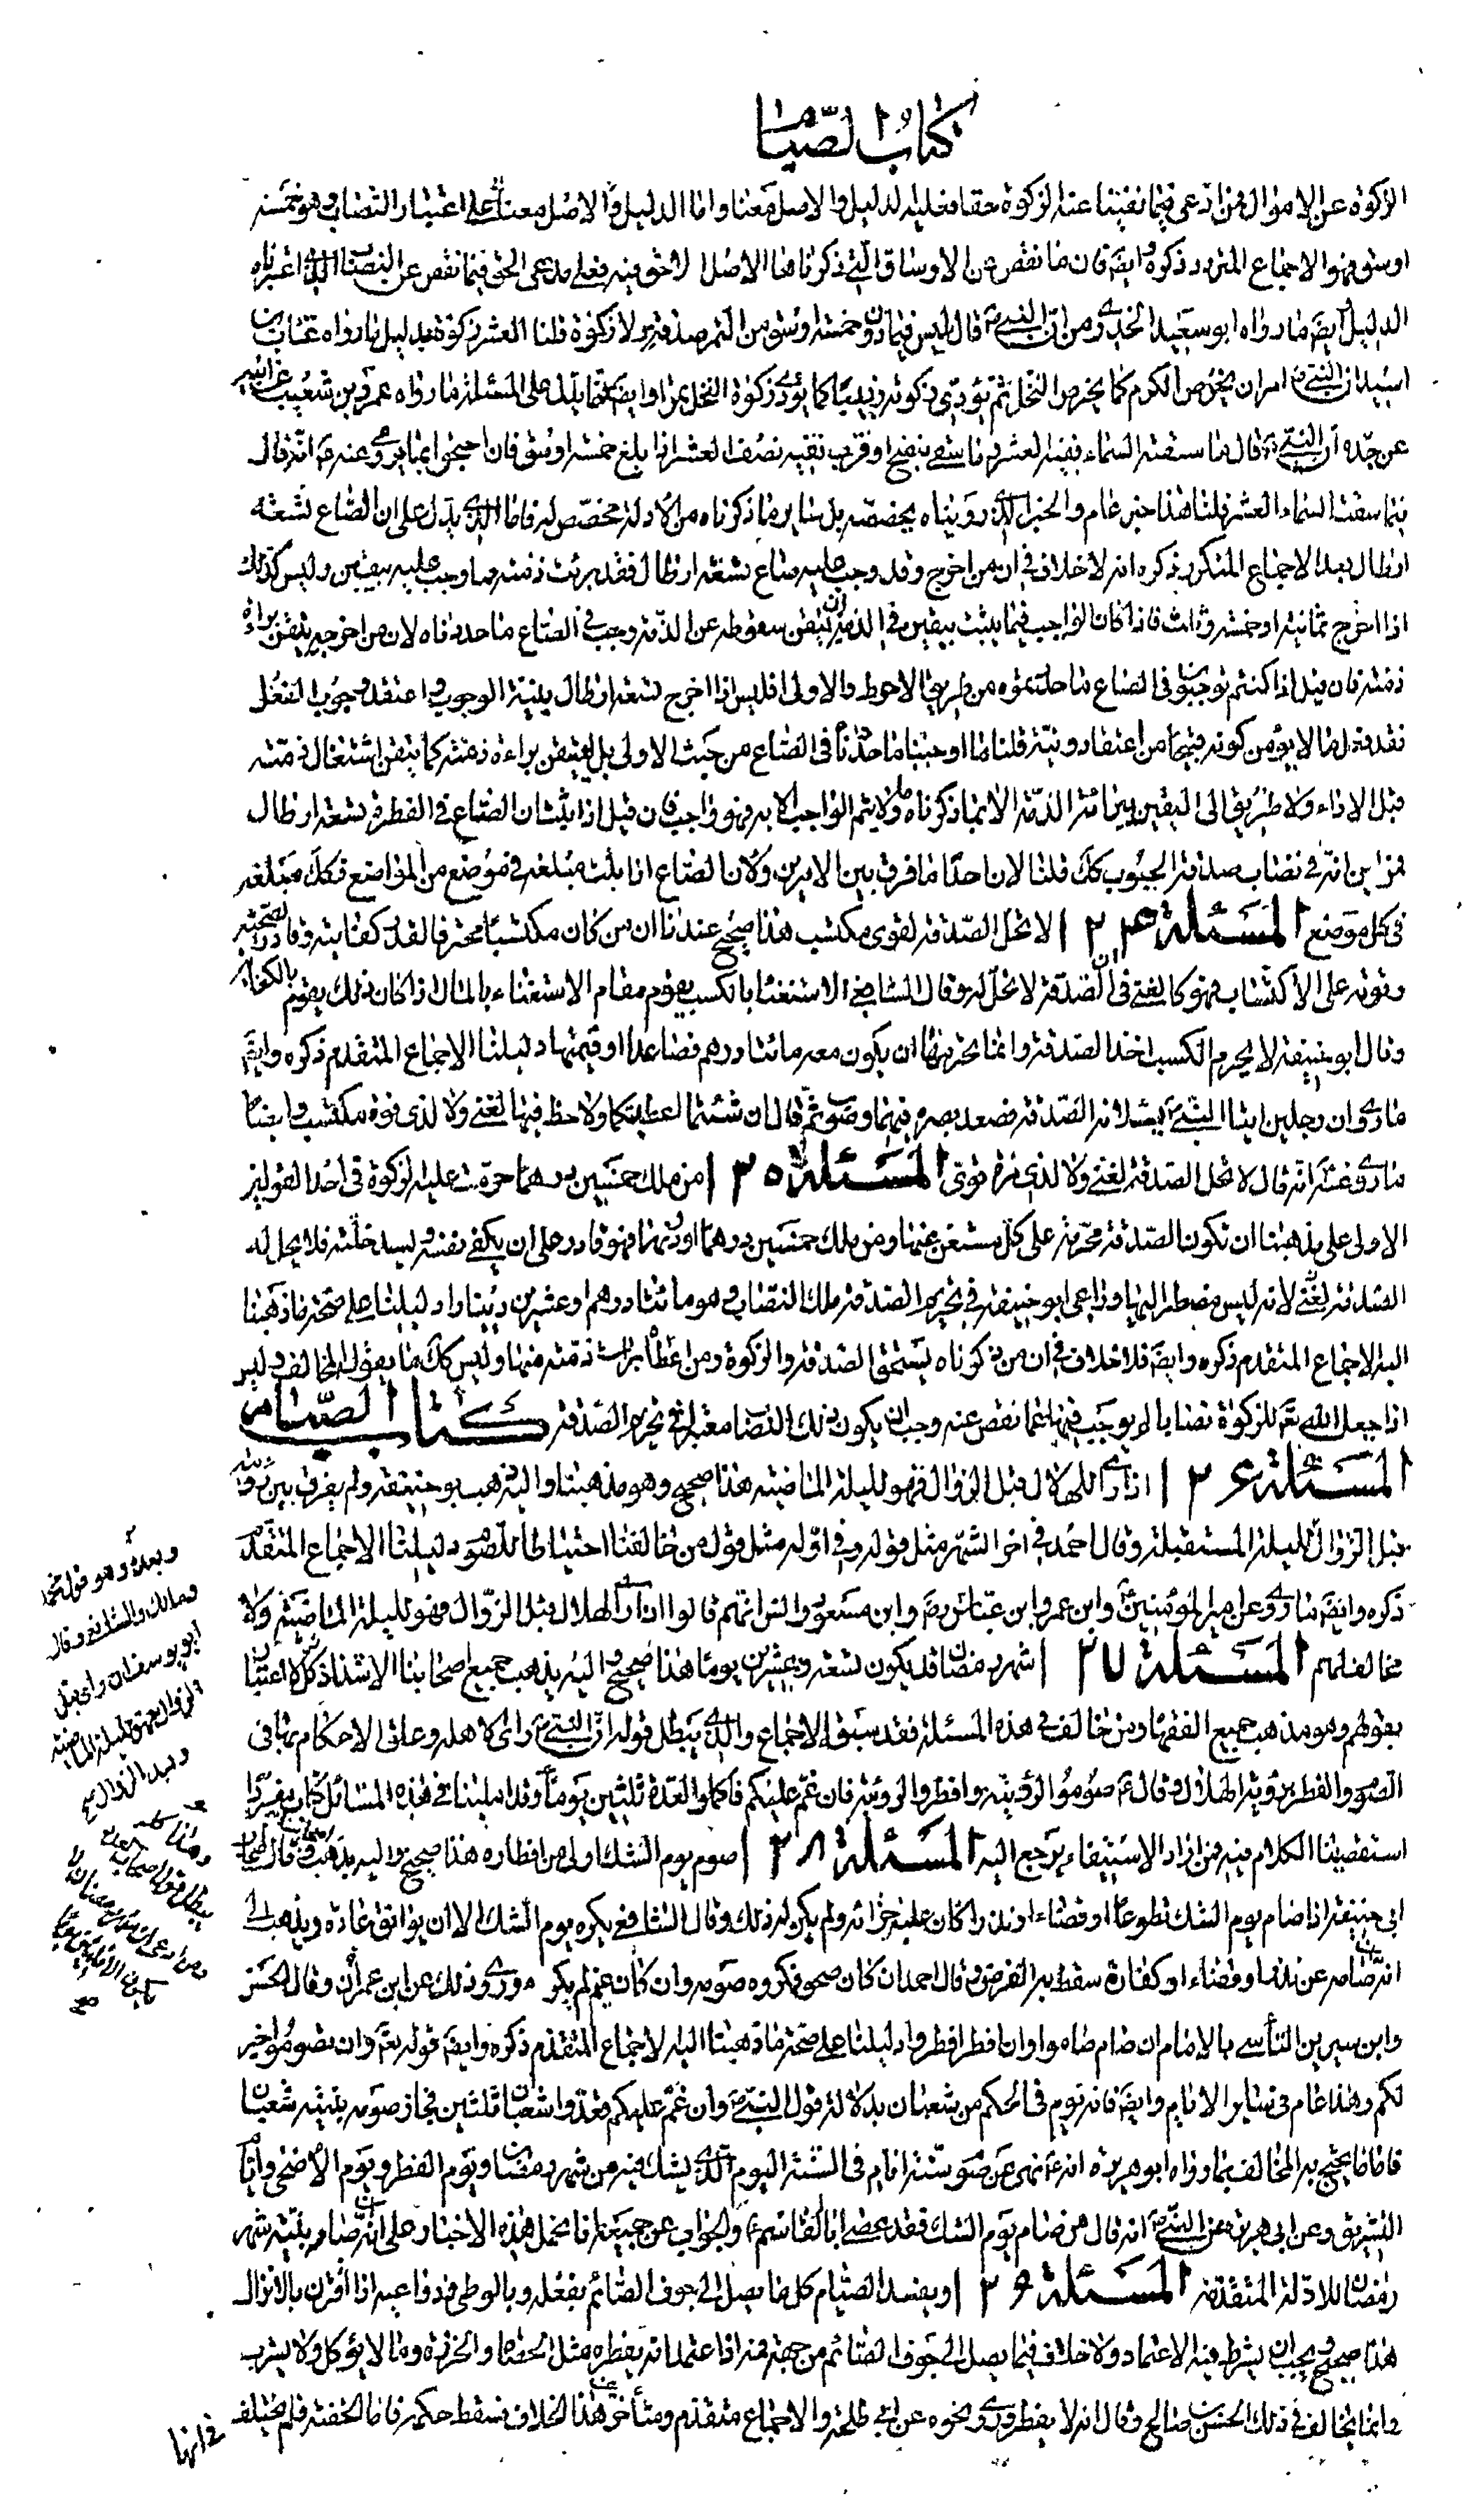 كتاب الصيام
الزكوة عن الاموال فمن ادعى فيما نفينا عنه الزكوة حقا فعليه الدليل والاصل معنا واما الدليل والاصل معنا على اعتبار النصاب وهو خمسة
اوسق فهو الاجماع المتردد ذكره وايضا فان ما نقص عن الاوساق التي ذكرناها الاصل لا حق فيه فعلى مدعى الحق فيما نقص عن النصاب الذي اعتبرناه
الدليل وايضا ما رواه ابو سعيد الخدري من ان النبي ص قال ليس فيما دون خمسة اوسق من التمر صدقة ولا زكوة قلنا العشر زكوة بدليل ما رواه عتاب بن
اسيد ان النبي ص امر ان يخرص الكرم كما يخرص النخل ثم يؤدي زكوته زبيبا كما يؤدي زكوة النخل تمرا وايضا فما يدل على المسئلة ما رواه عمرو بن شعيب عن ابيه
عن جده ان النبي ص قال ما سقته السماء ففيه العشر وما سقي بنضح او قرب ففيه نصف العشر اذا بلغ خمسة اوسق فان احتجوا بما يروى عنه ع انه قال
فيما سقت السماء العشر قلنا هذا خبر عام والخبر الذي رويناه يخصصه بل سائر ما ذكرناه من الادلة مخصص له فاما الذي يدل على ان الصاع تسعة
ارطال بعد الاجماع المتكرر ذكره انه لا خلاف في ان من اخرج وقد وجب عليه صاع تسعة ارطال فقد برئت ذمته مما وجب عليه بيقين وليس كذلك
اذا اخرج ثمانية او خمسة وثلث فاذا كان الواجب فيما يثبت بيقين في الذمة ان يتيقن سقوطه عن الذمة وجب في الصاع ما حددناه لان من اخرجه يتيقن براءة
ذمته فان قيل اذا كنتم توجبون في الصاع ما حددتموه من طريق الاحوط والاولى افليس اذا اخرج تسعة ارطال بنية الوجوب واعتقد وجوب الفعل
فقد فعل ما لا يؤمن كونه قبيحا من اعتقاد ونية قلنا ما اوجبنا ما حددناه في الصاع من حيث الاولى بل ليتيقن براءة ذمته كما يتيقن اشتغال ذمته
قبل الاداء ولا طريق الى اليقين ببراءة الذمة الا بما ذكرناه وما لا يتم الواجب الا به فهو واجب فان قيل اذا ثبت ان الصاع في الفطرة تسعة ارطال
فمن اين انه في نصاب صدقة الحبوب كك قلنا لان احدا ما فرق بين الامرين ولان الصاع اذا ثبت مبلغه في موضع من المواضع فكك مبلغه
في كل موضع المسئلة ١٢٤ لا تحل الصدقة لقوى مكتسب هذا صحيح عندنا ان من كان مكتسبا محترفا لقدر كفايته وقادر الصحته
وقوته على الاكتساب فهو كالغني في ان الصدقة لا تحل له وقال الشافعي الاستغناء بالكسب يقوم مقام الاستغناء بالمال اذا كان ذلك يقوم بالكفاية
وقال ابو حنيفة لا يحرم الكسب اخذ الصدقة وانما يحرمها ان يكون معه مائتا درهم فصاعدا او قيمتها دليلنا الاجماع المتقدم ذكره وايضا
ما روي ان رجلين اتيا النبي ص يسئلانه الصدقة فصعد بصره فيهما وصوب ثم قال ان شئتما اعطيتكما ولا حظ فيها لغني ولا لذي قوة مكتسب وايضا
ما روي عنه ع انه قال لا تحل الصدقة لغني ولا لذي مرة قوى المسئلة ١٢٥ من ملك خمسين درهما حرمت عليه الزكوة في احد القولين
الاولى على مذهبنا ان تكون الصدقة محرمة على كل مستغن عنها ومن ملك خمسين درهما او دونها فهو قادر على ان يكفي نفسه ويسد خلته فلا يحل له
الصدقة لغني لانه ليس مضطر اليها وراعى ابو حنيفة في تحريم الصدقة ملك النصاب وهو مائتا درهم او عشرين دينارا دليلنا على صحة ما ذهبنا
اليه الاجماع المتقدم ذكره وايضا فلا خلاف في ان من ذكرناه يستحق الصدقة والزكوة ومن اعطاه برئت ذمته منها وليس كك ما يقوله المخالف وليس
اذا جعل الله تعالى للزكوة نصابا لم يوجب فيها فيما نقص عنه وجب ان يكون ذلك النصاب معتبرا في تحريم الصدقة كتاب الصيام
المسئلة ١٢٦ اذا رأى الهلال قبل الزوال فهو لليلة الماضية هذا صحيح وهو مذهبنا واليه ذهب ابو حنيفة ولم يفرق بين رؤيته
قبل الزوال لليلة المستقبلة وقال احمد في اخر الشهر مثل قوله وفي اوله مثل قول من خالفنا احتياطا للصوم دليلنا الاجماع المتقدم
ذكره وايضا ما روي عن امير المؤمنين ع وابن عمر وابن عباس رض وابن مسعود وانس انهم قالوا اذا رأى الهلال قبل الزوال فهو لليلة الماضية ولا
مخالف لهم المسئلة ١٢٧ شهر رمضان قد يكون تسعة وعشرين يوما هذا صحيح واليه يذهب جميع اصحابنا الا شذاذ كان لا اعتبار
بقولهم وهو مذهب جميع الفقهاء ومن خالف في هذه المسئلة فقد سبقه الاجماع والذي يبطل قوله ان النبي ص رأى الاهلة وعلق الاحكام بها في
الصوم والفطر برؤية الهلال وقال ع صوموا لرؤيته وافطروا لرؤيته فان غم عليكم فاكملوا العدة ثلثين يوما وقد املينا في هذه المسائل كتابا مفردا
استقصينا الكلام فيه فمن اراد الاستيفاء يرجع اليه المسئلة ١٢٨ صوم يوم الشك اولى من افطاره هذا صحيح واليه يذهب وقال اصحاب
ابي حنيفة اذا صام يوم الشك تطوعا او قضاء او نذرا كان عليه جزاءه ولم يكره ذلك وقال الشافعي يكره يوم الشك الا ان يوافق عادة ويذهب الى
انه ان صامه عن نذر او قضاء او كفارة سقط به الفرض وقال احمد ان كان صحو فيكره صومه وان كان غيم لم يكره وروي ذلك عن ابن عمر وقال الحسن
وابن سيرين التأسي بالامام ان صام صاموا وان افطر افطروا دليلنا على صحة ما ذهبنا اليه الاجماع المتقدم ذكره وايضا قوله تعالى وان تصوموا خير
لكم وهذا عام في سائر الايام وايضا فانه يوم في الحكم من شعبان بدلالة قول النبي ص وان غم عليكم فعدوا شعبان ثلثين فجاز صومه بنية شعبان
فاما ما يحتج به المخالف بما رواه ابو هريرة انه ع نهى عن صوم ستة ايام في السنة اليوم الذي يشك فيه من شهر رمضان ويوم الفطر ويوم الاضحى وايام
التشريق وعن ابي هريرة عن النبي ص انه قال من صام يوم الشك فقد عصى ابا القاسم ع والجواب عن جميعه انا نحمل هذه الاخبار على ان صامه بنية شهر
رمضان للادلة المتقدمة المسئلة ١٢٩ ويفسد الصيام كل ما يصل الى جوف الصائم بفعله وبالوطى في ذواته اذا اقترن بالانزال
هذا صحيح ويجب ان يشرط فيه الاعتماد ولا خلاف فيما يصل الى جوف الصائم من جهة فمه اذا اعتمد انه يفطره مثل الحصاة والخرزة وما لا يؤكل ولا يشرب
وانما يخالف في ذلك الحسن بن صالح وقال انه لا يفطر وروي نحوه عن ابي طلحة والاجماع متقدم ومتأخر عن هذا الخلاف فسقط حكمه فاما الحقنة فلم يختلف
في انها
وبعده وهو قول محمد
ومالك والشافعي وقال
ابو يوسف ان رأى قبل
الزوال فهو لليلة الماضية
وبعد الزوال